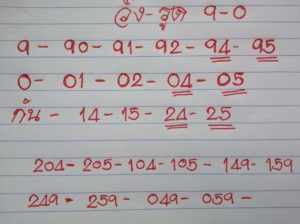 วิ่ง-รูด 9-0
9 - 90 - 91 - 92 - 94 - 95
0 - 01 - 02 - 04 - 05
กัน - 14 - 15 - 24 - 25
204 - 205 - 104 - 105 - 149 - 159
249 - 259 - 049 - 059 -